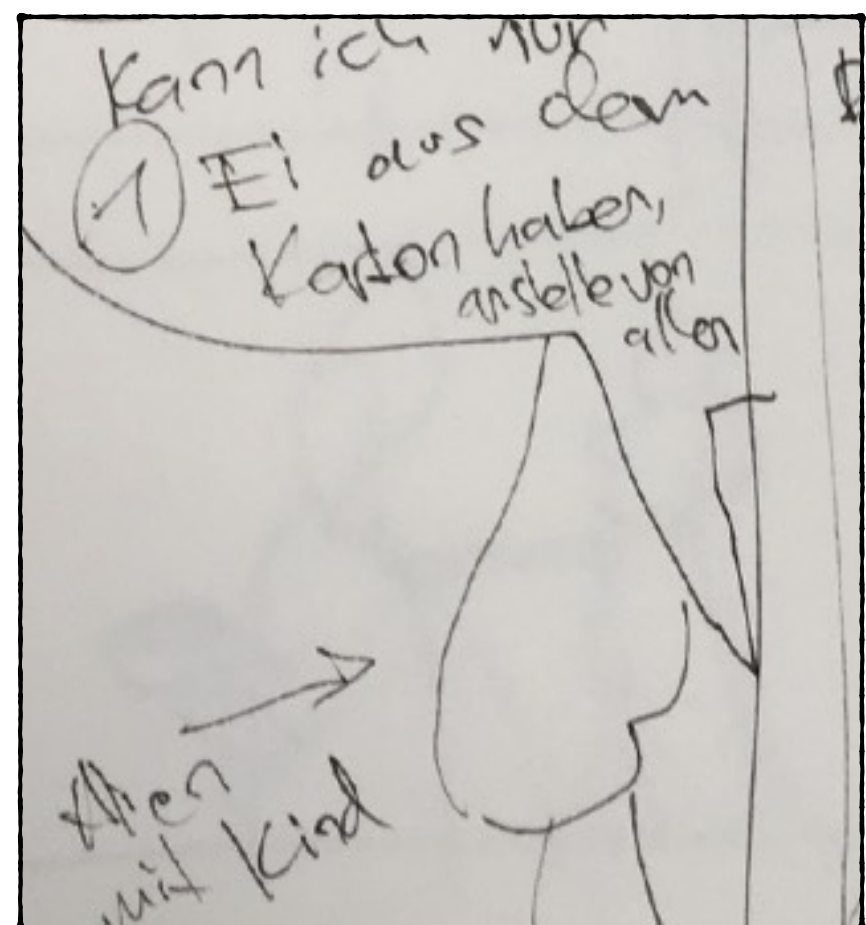 Kann ich nur
1 Ei aus dem
Karton haben,
anstelle von
allen
Alien
mit Kind